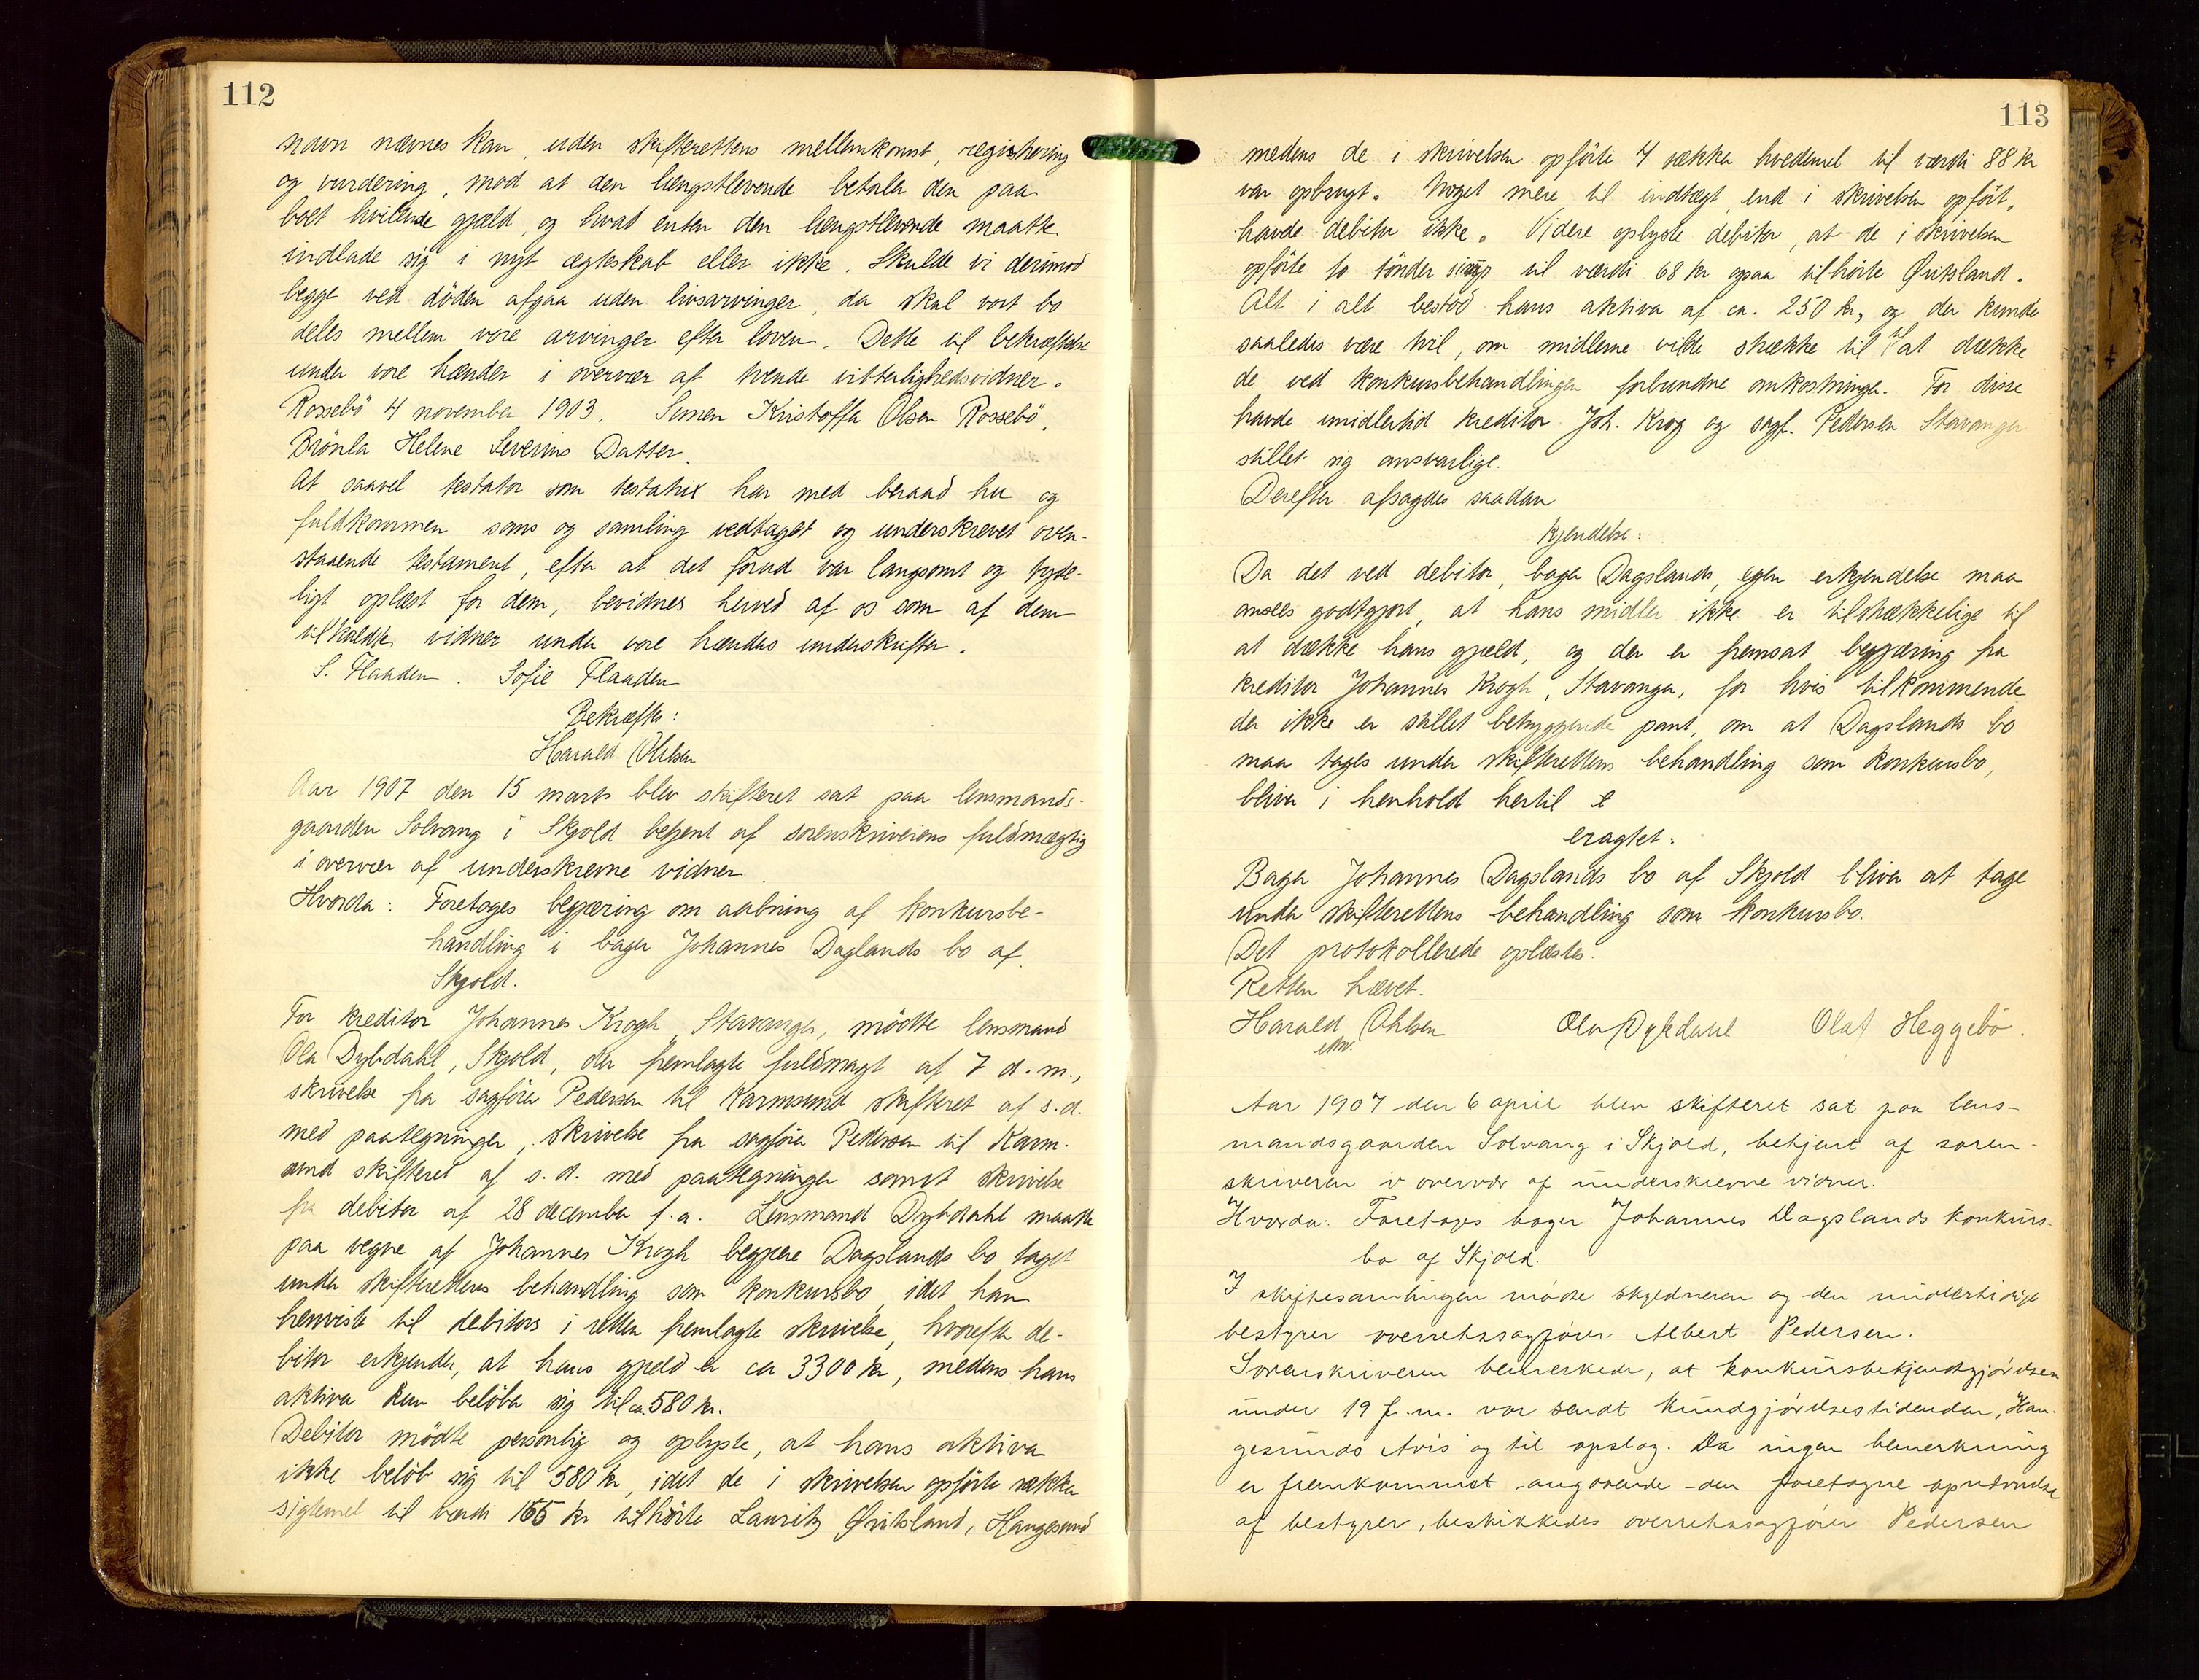 112
navn nævnes kan, uden skifterettens mellemkomst, registrering
og vurdering, mod at den længstlevende betaler den paa
boet hvilende gjæld, og hvad enten den længstlevende maatte
indlade sig i nyt ægteskab eller ikke. Skulde vi derimod
begge ved döden afgaa uden livsarvinger, da skal vort bo
deles mellem vore arvinger efter loven. Dette til bekræftelse
under vore hænder i overvær af tvende vitterlighedsvidner.
Rossebö 4 november 1903. Simon Kristoffer Olsen Rossebö.
Brönla Helene Severins Datter.
At saavel testator som testatrix har med beraad hu og
fuldkommen sans og samling vedtaget og underskrevet oven-
staaende testament, efter at det forud var langsomt og tyde-
ligt oplæst for dem, bevidnes herved af os som af dem
tilkaldte vidner under vore hænders underskrifter.
S. Flaaden. Sofie Flaaden
Bekræftes:
Harald Ohlsen
Aar 1907 den 15 marts blev skifteret sat paa lensmands-
gaarden Solvang i Skjold betjent af sorenskriverens fuldmægtig
i overvær af underskrevne vidner.
Hvorda: Foretoges begjæring om aabning af konkursbe-
handling i bager Johannes Daglands bo af
Skjold.
For kreditor Johannes Krogh, Stavanger, mödte lensmand
Ola Dybdahl, Skjold, der fremlagte fuldmagt af 7 d.m.,
skrivelse fra sagförer Pedersen til Karmsund skifteret af s.d.
med paategninger, skrivelse fra sagförer Pedersen til Karm-
sund skifteret af s.d. med paategninger samt skrivelse
fra debitor af 28 december f.a. Lensmand Dybdahl maatte
paa vegne af Johannes Krogh begjære Dagslands bo taget
under skifterettens behandling som konkursbo, idet han
henviste til debitors i retten fremlagte skrivelse, hvorefter de-
bitor erkjender, at hans gjæld er ca 3300 kr, medens hans
aktiva kun belöber sig til ca 580 kr.
Debitor mödte personlig og oplyste, at hans aktiva
ikke belöb sig til 580 kr, idet de i skrivelsen opförte sækker
sigtemel til værdi 165 kr tilhörte Lauritz Øritsland, Haugesund
113
medens de i skrivelsen opförte 4 sækker hvedemel til værdi 88 kr
var opbrugt. Noget mere til indtægt, end i skrivelsen opfört,
havde debitor ikke. Videre oplyste debitor, at de i skrivelsen
opförte to tönder sirup til værdi 68 kr ogsaa tilhörte Øritsland.
Alt i alt bestod hans aktiva af ca. 250 kr, og der kunde
saaledes være tvil, om midlerne vilde strække til til at dække
de ved konkursbehandlingen forbundne omkostninger. For disse
havde imidlertid kreditor Joh. Krog og sagf. Pedersen Stavanger
stillet sig ansvarlige.
Derefter afsagdes saadan
kjendelse:
Da det ved debitor, bager Dagslands, egen erkjendelse maa
ansees godtgjort, at hans midler ikke er tilstrækkelige til
at dække hans gjæld, og der er fremsat begjæring fra
kreditor Johannes Krogh, Stavanger, for hvis tilkommende
der ikke er stillet betryggende pant, om at Dagslands bo
maa tages under skifterettens behandling som konkursbo,
bliver i henhold hertil
eragtet:
Bager Johannes Dagslands bo af Skjold bliver at tage
under skifterettens behandling som konkursbo.
Det protokollerede oplæstes.
Retten hævet.
Harald Ohlsen Ola Dybdahl Olaf Heggebö.
Aar 1907 den 6 april blev skifteret sat paa lens-
mandsgaarden Solvang i Skjold, betjent af soren-
skriveren i overvær af underskrevne vidner.
Hvorda: Foretoges bager Johannes Dagslands konkurs-
bo af Skjold.
I skiftesamlingen mödte skyldneren og den midlertidige
bestyrer overretssagförer Albert Pedersen.
Sorenskriveren bemerkede, at konkursbekjendtgjörelsen
under 19 f.m. var sendt Kundgjörelsestidenden, Hau-
gesunds Avis og til opslag. Da ingen bemerkning
er fremkommet angaaende den foretagne opnævnelse
af bestyrer, beskikkedes overretssagförer Pedersen